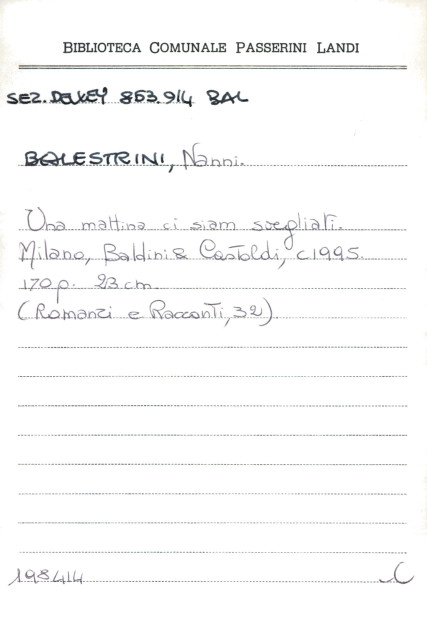 BIBLIOTECA COMUNALE PASSERINI LANDI
SEZ. DEWEY 853.914 BAL
BALESTRINI, Nanni.
Una mattina ci siam svegliati.
Milano, Baldini & Castoldi, c1995.
170 p. 23 cm.
(Romanzi e Racconti, 32).
198414